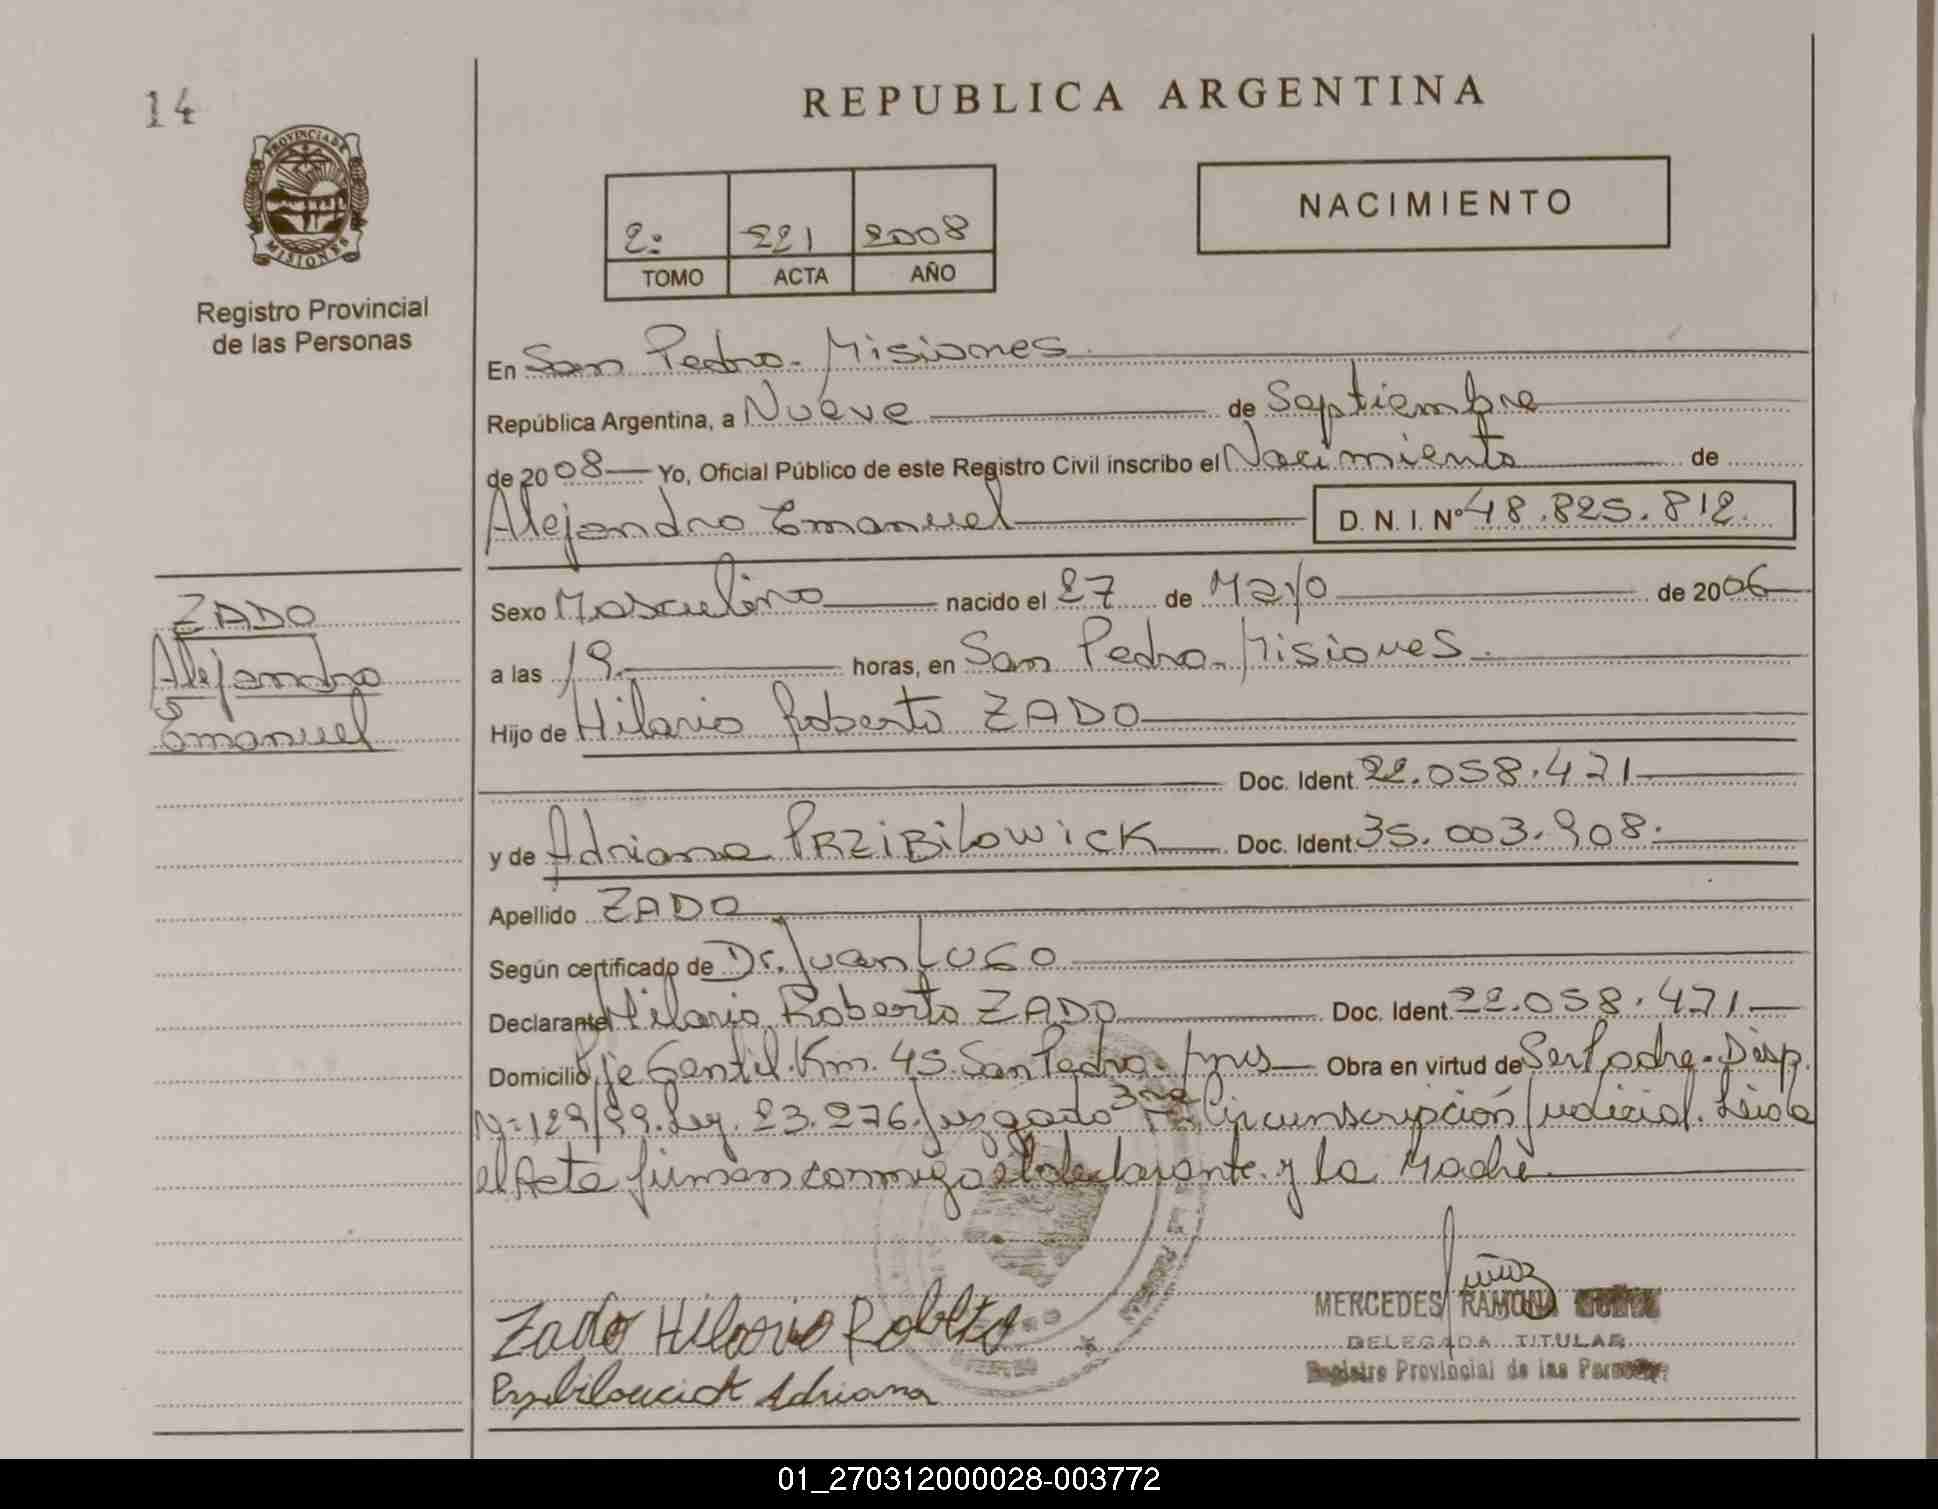 14
REPUBLICA ARGENTINA
PROVINCIA DE
MISIONES
Registro Provincial
de las Personas
2: 221 2008
TOMO ACTA AÑO
NACIMIENTO
En San Pedro - Misiones
República Argentina, a Nueve de Septiembre
de 2008 Yo, Oficial Público de este Registro Civil inscribo el Nacimiento de
Alejandro Emanuel D. N. I. Nº 48.825.812.
ZADO
Alejandro
Emanuel
Sexo Masculino nacido el 27 de Mayo de 2006
a las 19 horas, en San Pedro - Misiones
Hijo de Hilario Roberto ZADO
Doc. Ident. 22.058.471
y de Adriana PRZiBiLOWiCK Doc. Ident. 35.003.908.
Apellido ZADO
Según certificado de Dr. Juan LUGO
Declarante Hilario Roberto ZADO Doc. Ident. 22.058.471
Domicilio Pje Gentil. Km. 45. San Pedro - Mns Obra en virtud de Ser Padre - Disp.
Nº 129/99. Ley. 23.276. Juzgado 3ra Circunscripción Judicial. Leida
el Acta firman conmigo el declarante y la Madre
Zado Hilario Roberto
Adriana
MERCEDES RAMONA
DELEGADA TITULAR
Registro Provincial de las Personas
01_270312000028-003772